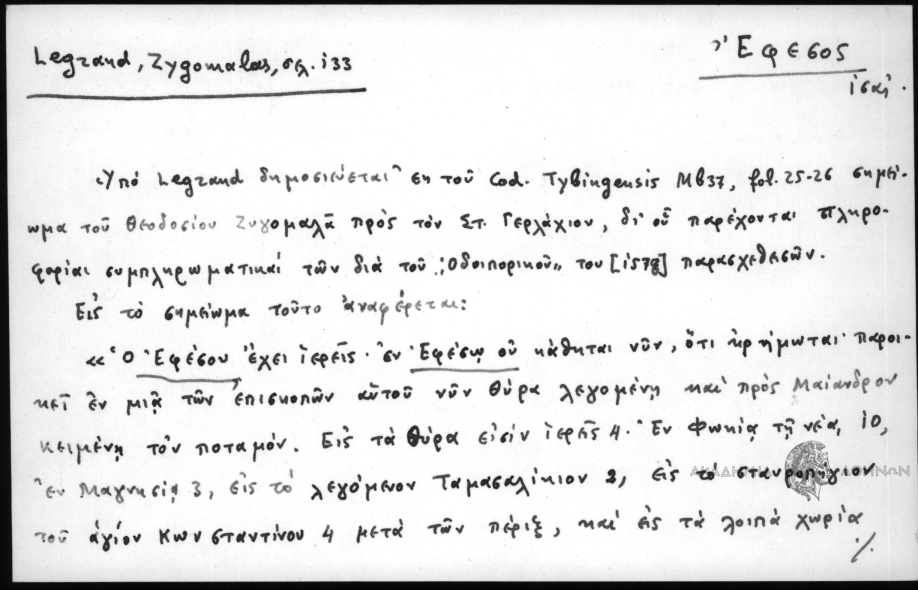 Legrand, Zygomalas, σελ. 133
Ἔφεσος
ις αἰ.
Ὑπό Legrand δημοσιεύεται ἐκ τοῦ Cod. Tybingensis Mb37, fol. 25-26 σημεί-
ωμα τοῦ Θεοδοσίου Ζυγομαλᾶ πρός τόν Στ. Γερλάχιον, δι' οὗ παρέχονται πληρο-
φορίαι συμπληρωματικαί τῶν διά τοῦ "Ὁδοιπορικοῦ" του [1578] παρασχεθεισῶν.
Εἰς τό σημείωμα τοῦτο ἀναφέρεται:
«Ὁ Ἐφέσου ἔχει ἱερεῖς· ἐν Ἐφέσῳ οὐ κάθηται νῦν, ὅτι ἠρήμωται· παροι-
κεῖ ἐν μιᾷ τῶν ἐπισκοπῶν αὐτοῦ νῦν Θύρα λεγομένῃ καί πρός Μαίανδρον
κειμένῃ τόν ποταμόν. Εἰς τά Θύρα εἰσίν ἱερεῖς 4. Ἐν Φωκίᾳ τῇ νέᾳ, 10,
ἐν Μαγνησίᾳ 3, εἰς τό λεγόμενον Ταμασαλίκιον 2, εἰς τό σταυροπήγιον
τοῦ ἁγίου Κωνσταντίνου 4 μετά τῶν πέριξ, καί εἰς τά λοιπά χωρία
./.
ΑΚΑΔΗΜΙΑ ΑΘΗΝΩΝ